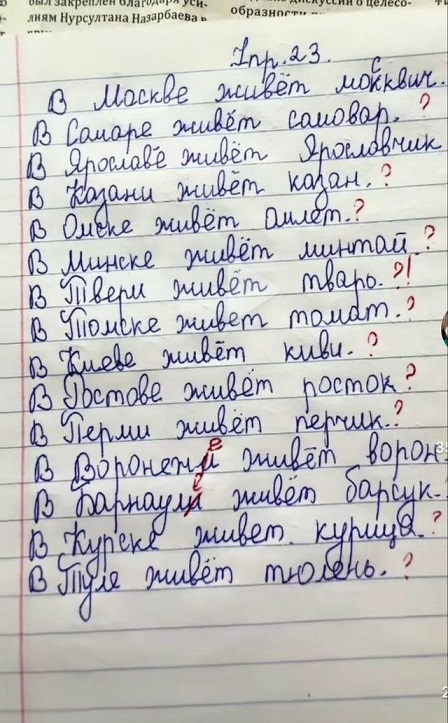 был закреплен благодаря уси-
лиям Нурсултана Назарбаева в
образности
Упр. 23.
В Москве живёт москвич.
В Самаре живёт самовар. ?
В Ярославе живёт Ярославчик
В Казани живёт казан. ?
В Омске живёт омлет. ?
В Минске живёт минтай ?
В Твери живёт тварь. ?!
В Томске живет томат. ?
В Киеве живёт киви. ?
В Ростове живёт росток ?
В Перми живёт перчик. ?
В Воронежи живёт ворон
В Барнаули живёт барсук.
В Курске живет курица. ?
В Туле живёт тюлень. ?